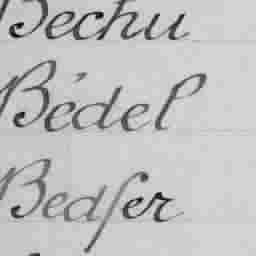 Bechu
Bédel
Bedſer